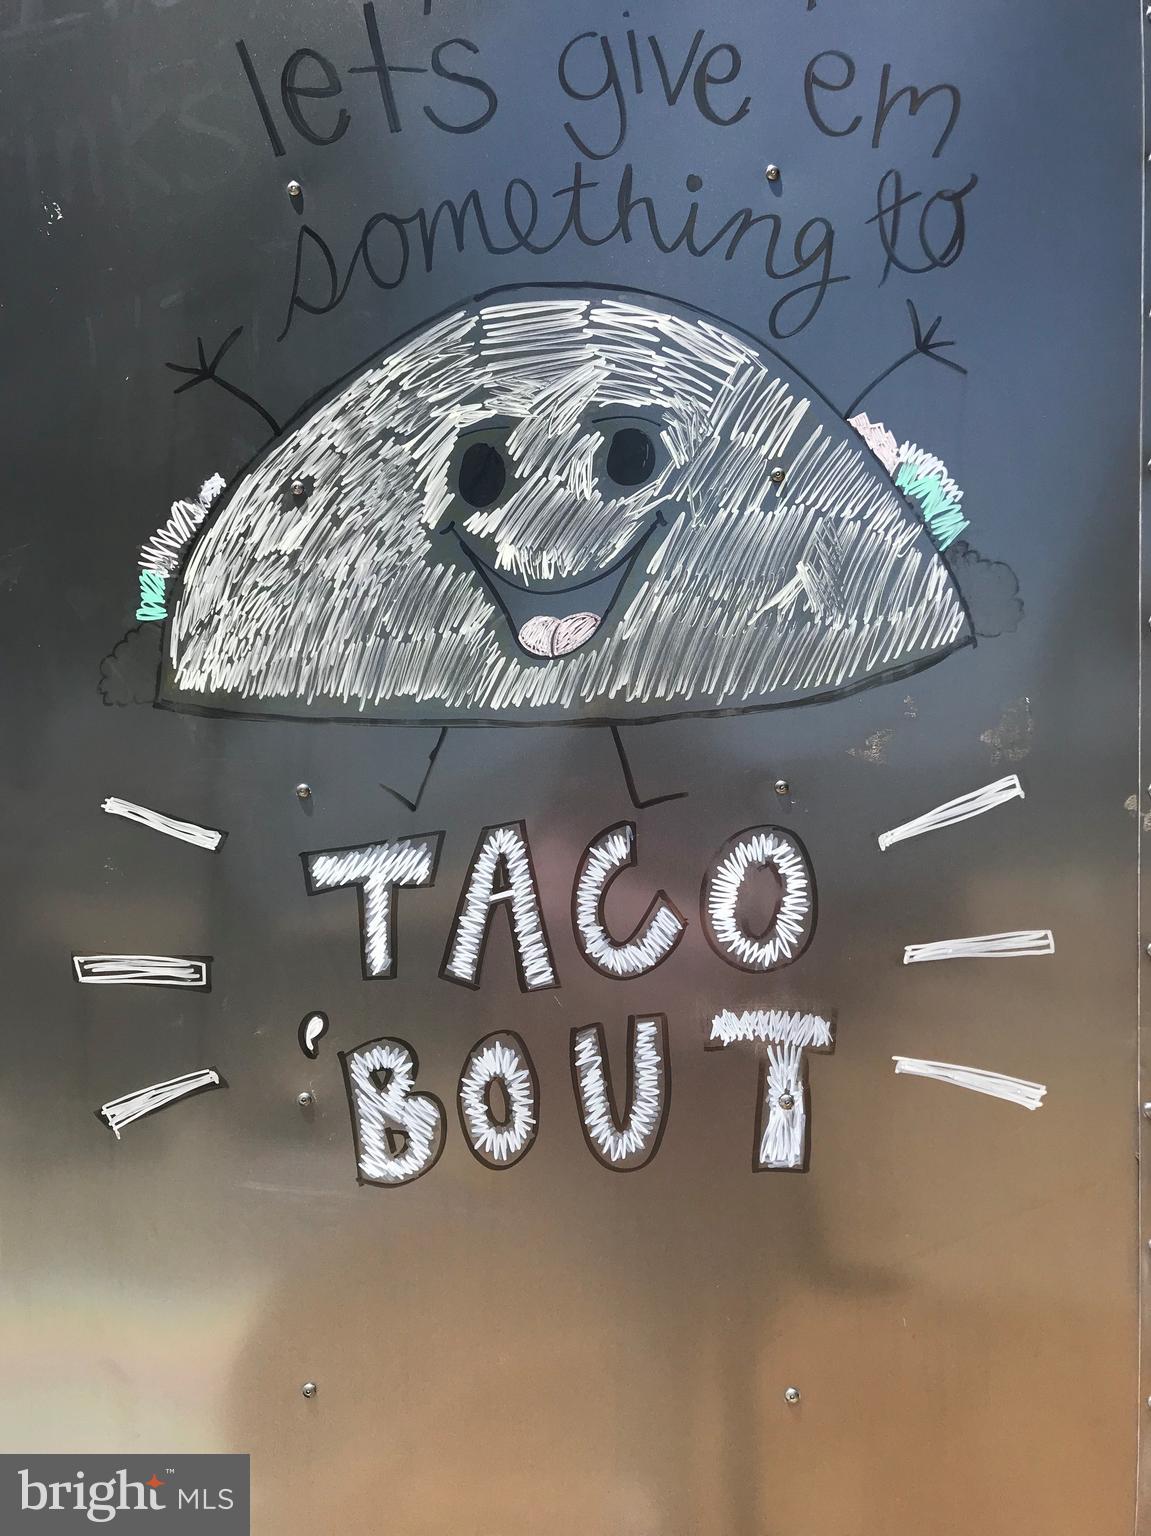 let's give em
something to
TACO
'BOUT
bright™ MLS